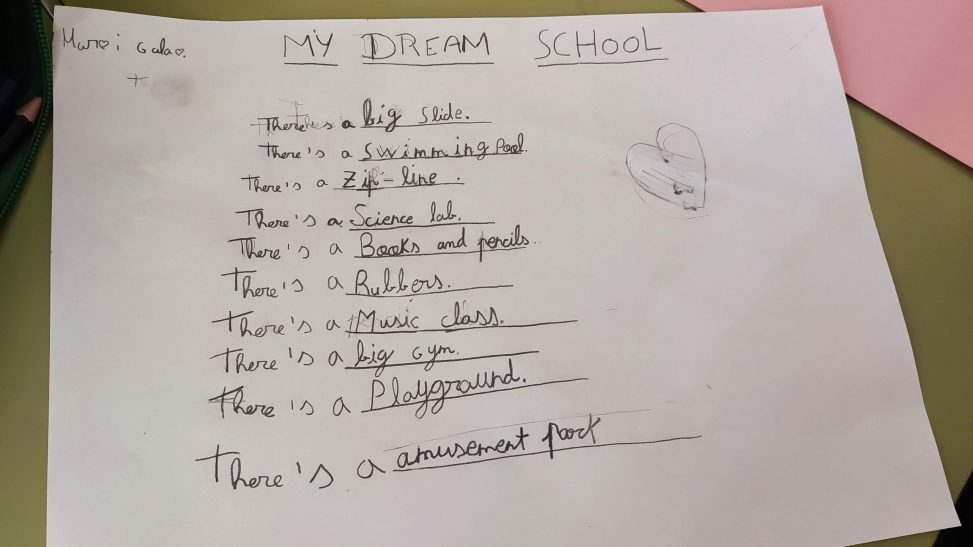 MY DREAM SCHOOL
There's a big slide.
There's a Swimming Pool.
There's a Zip-line.
There's a Science lab.
There's a Books and pencils.
There's a Rubbers.
There's a Music class.
There's a big gym.
There is a Playground.
There's a amusement park